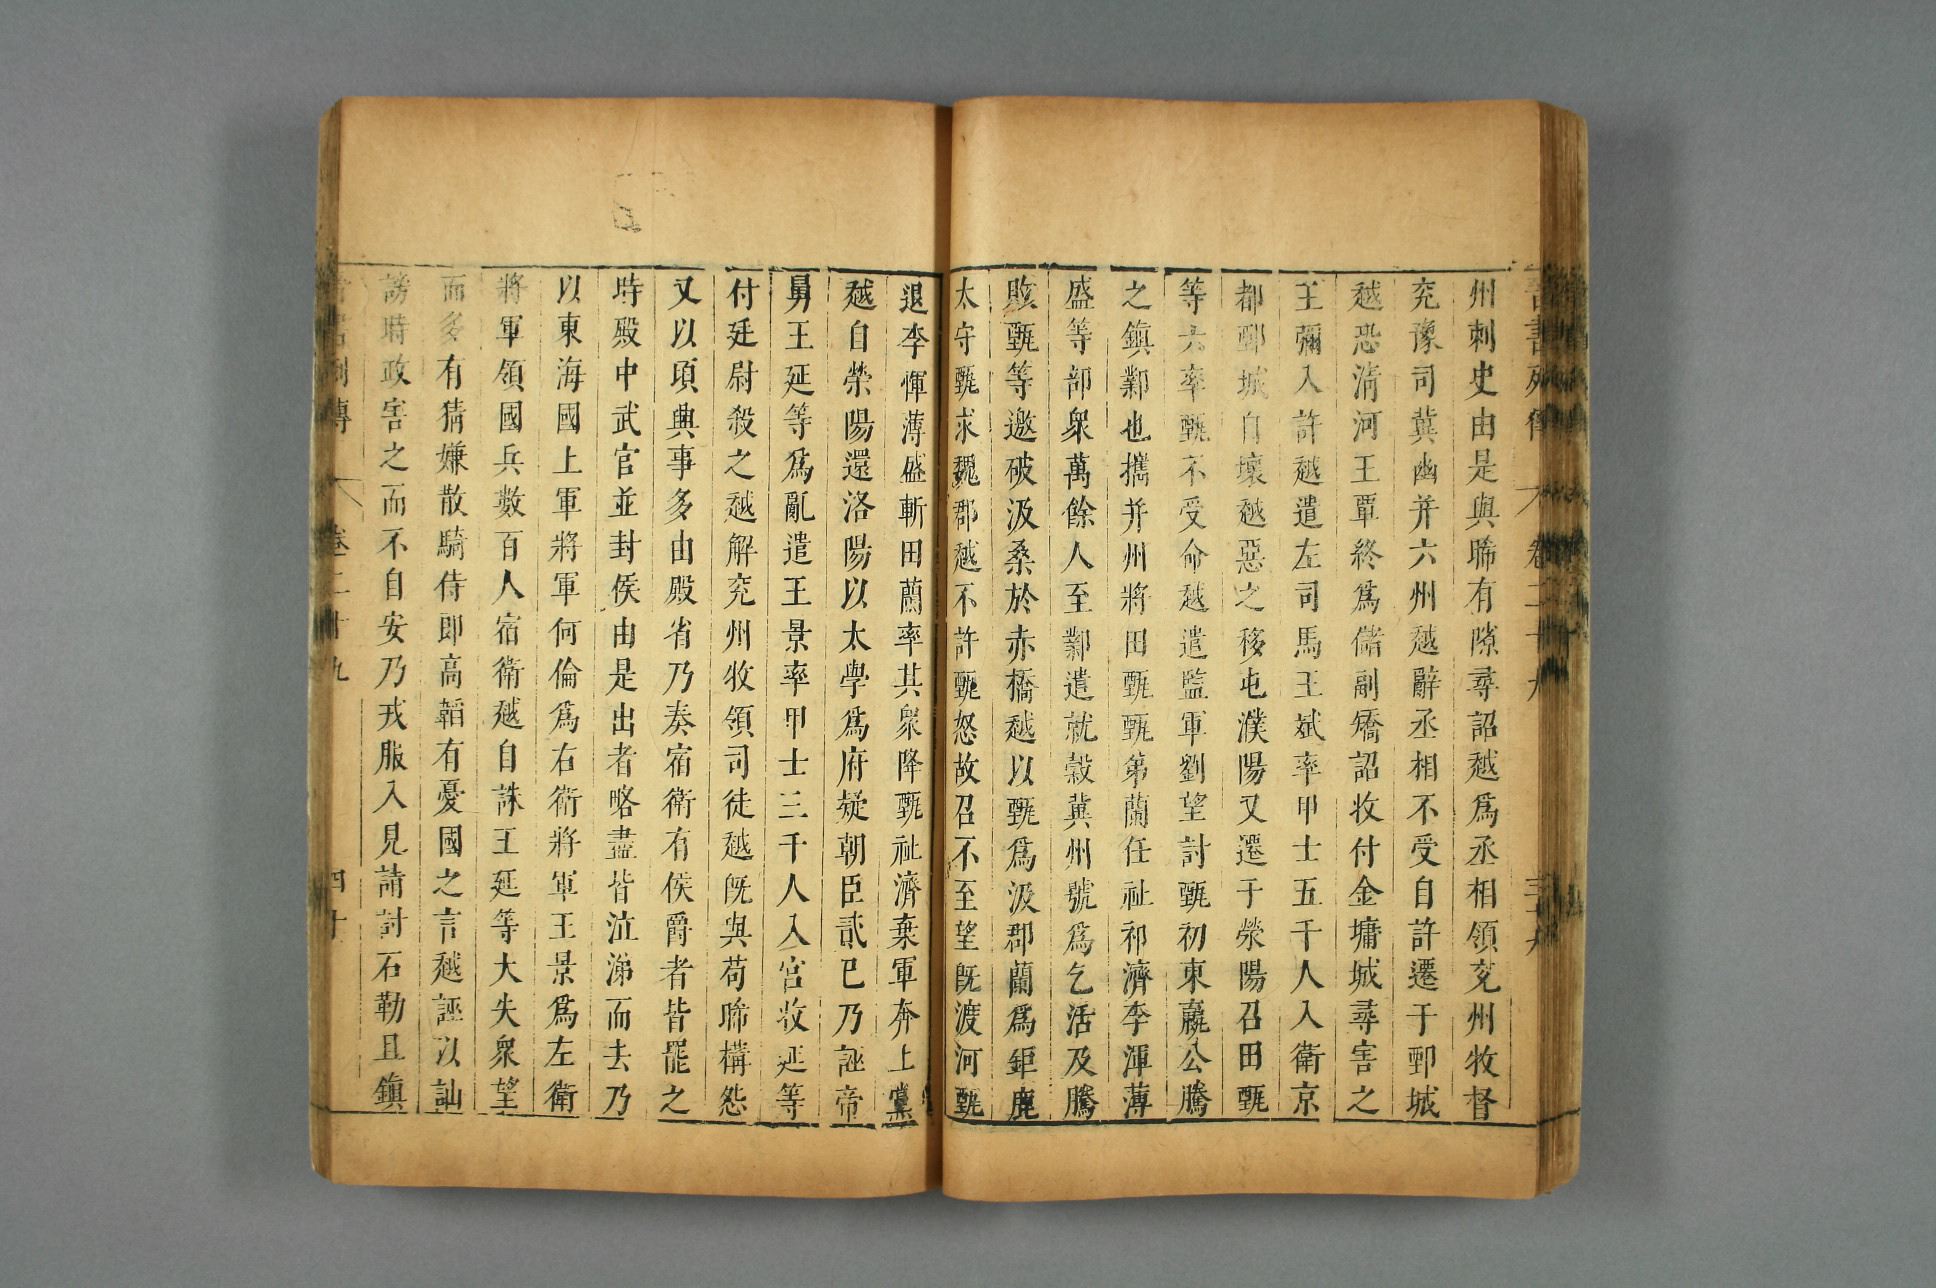 晉書列傳 卷二十九 三十九
州刺史由是與晞有隙尋詔越爲丞相領兗州牧督
兗豫司冀幽并六州越辭丞相不受自許遷于鄄城
越恐淸河王覃終爲儲副矯詔收付金墉城尋害之
王彌入許越遣左司馬王斌率甲士五千人入衛京
都鄄城自壞越惡之移屯濮陽又遷于滎陽召田甄
等六率甄不受命越遣監軍劉望討甄初東嬴公騰
之鎭鄴也攜并州將田甄甄弟蘭任祉祁濟李渾薄
盛等部衆萬餘人至鄴遣就穀冀州號爲乞活及騰
敗甄等邀破汲桑於赤橋越以甄爲汲郡蘭爲鉅鹿
太守甄求魏郡越不許甄怒故召不至望旣渡河甄
退李惲薄盛斬田蘭率其衆降甄祉濟棄軍奔上黨
越自滎陽還洛陽以太學爲府疑朝臣貳已乃誣帝
舅王延等爲亂遣王景率甲士三千人入宮收延等
付廷尉殺之越解兗州牧領司徒越旣與苟晞構怨
又以頃興事多由殿省乃奏宿衛有侯爵者皆罷之
時殿中武官並封侯由是出者略盡皆泣涕而去乃
以東海國上軍將軍何倫爲右衛將軍王景爲左衛
將軍領國兵數百人宿衛越自誅王延等大失衆望
而多有猜嫌散騎侍郎高韜有憂國之言越誣以訕
謗時政害之而不自安乃戎服入見請討石勒且鎭
晉書列傳 卷二十九 四十